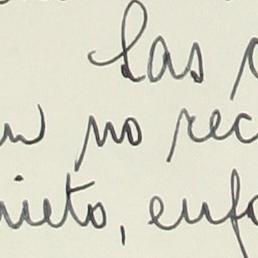 las
no rec
nieto, enfo